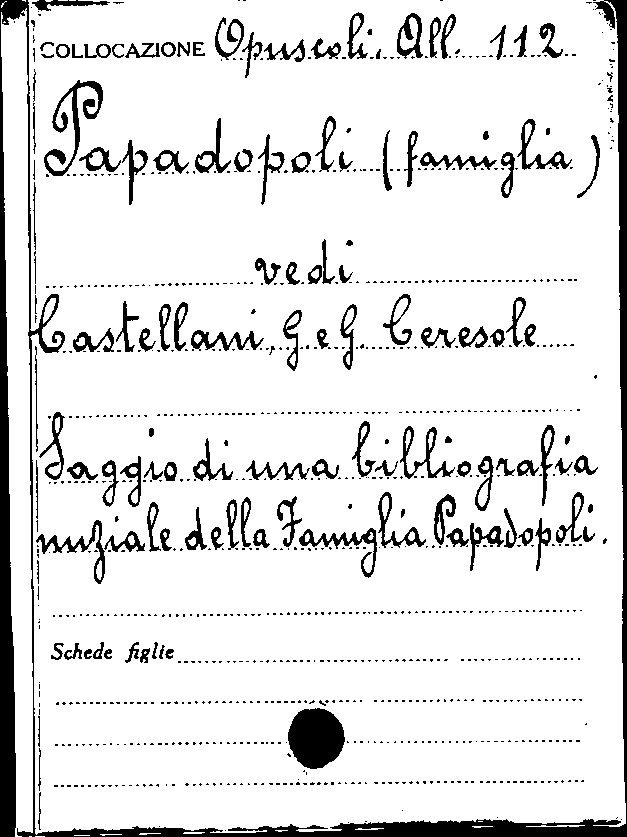 COLLOCAZIONE Opuscoli. All. 112
Papadopoli (famiglia)
vedi
Castellani, G. e G. Ceresole
Saggio di una bibliografia
nuziale della Famiglia Papadopoli.
Schede figlie